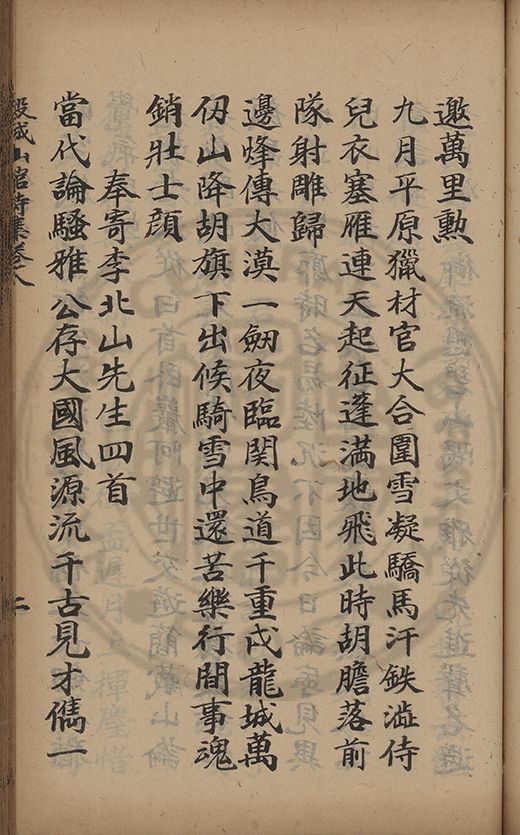 邀萬里勲
九月平原獵材官大合圍雪凝驕馬汗鉄澁侍
兒衣塞雁連天起征逢滿地飛此時胡膽落前
隊射雕歸
邊烽傳大漠一劒夜臨関鳥道千重戍龍城萬
仞山降胡旗下出候騎雪中還苦樂行間事魂
銷壯士顔
奉寄李北山先生四首
當代論騷雅公存大國風源流千古見才儁一
穀城山館詩集卷八
二